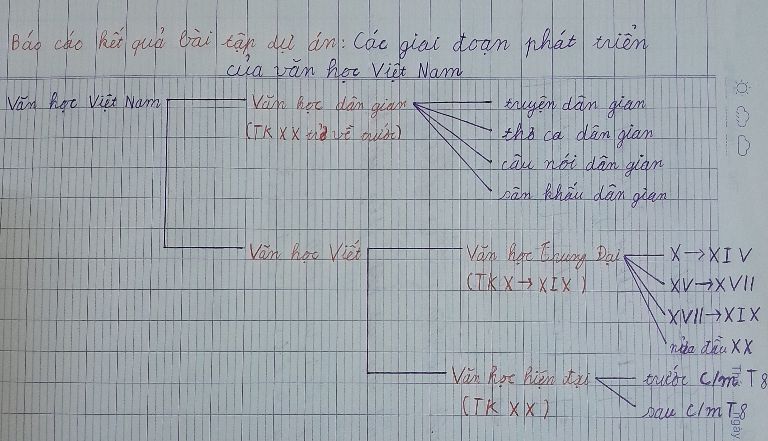 Báo cáo kết quả bài tập dự án: Các giai đoạn phát triển
của văn học Việt Nam
Văn học Việt Nam
Văn học dân gian
(TK XX trở về trước)
truyện dân gian
thơ ca dân gian
câu nói dân gian
sân khấu dân gian
Văn học Viết
Văn học Trung Đại
(TK X → XIX)
X → XIV
XV → XVII
XVII → XIX
nửa đầu XX
Văn học hiện đại
(TK XX)
trước C/m T8
sau C/m T-8